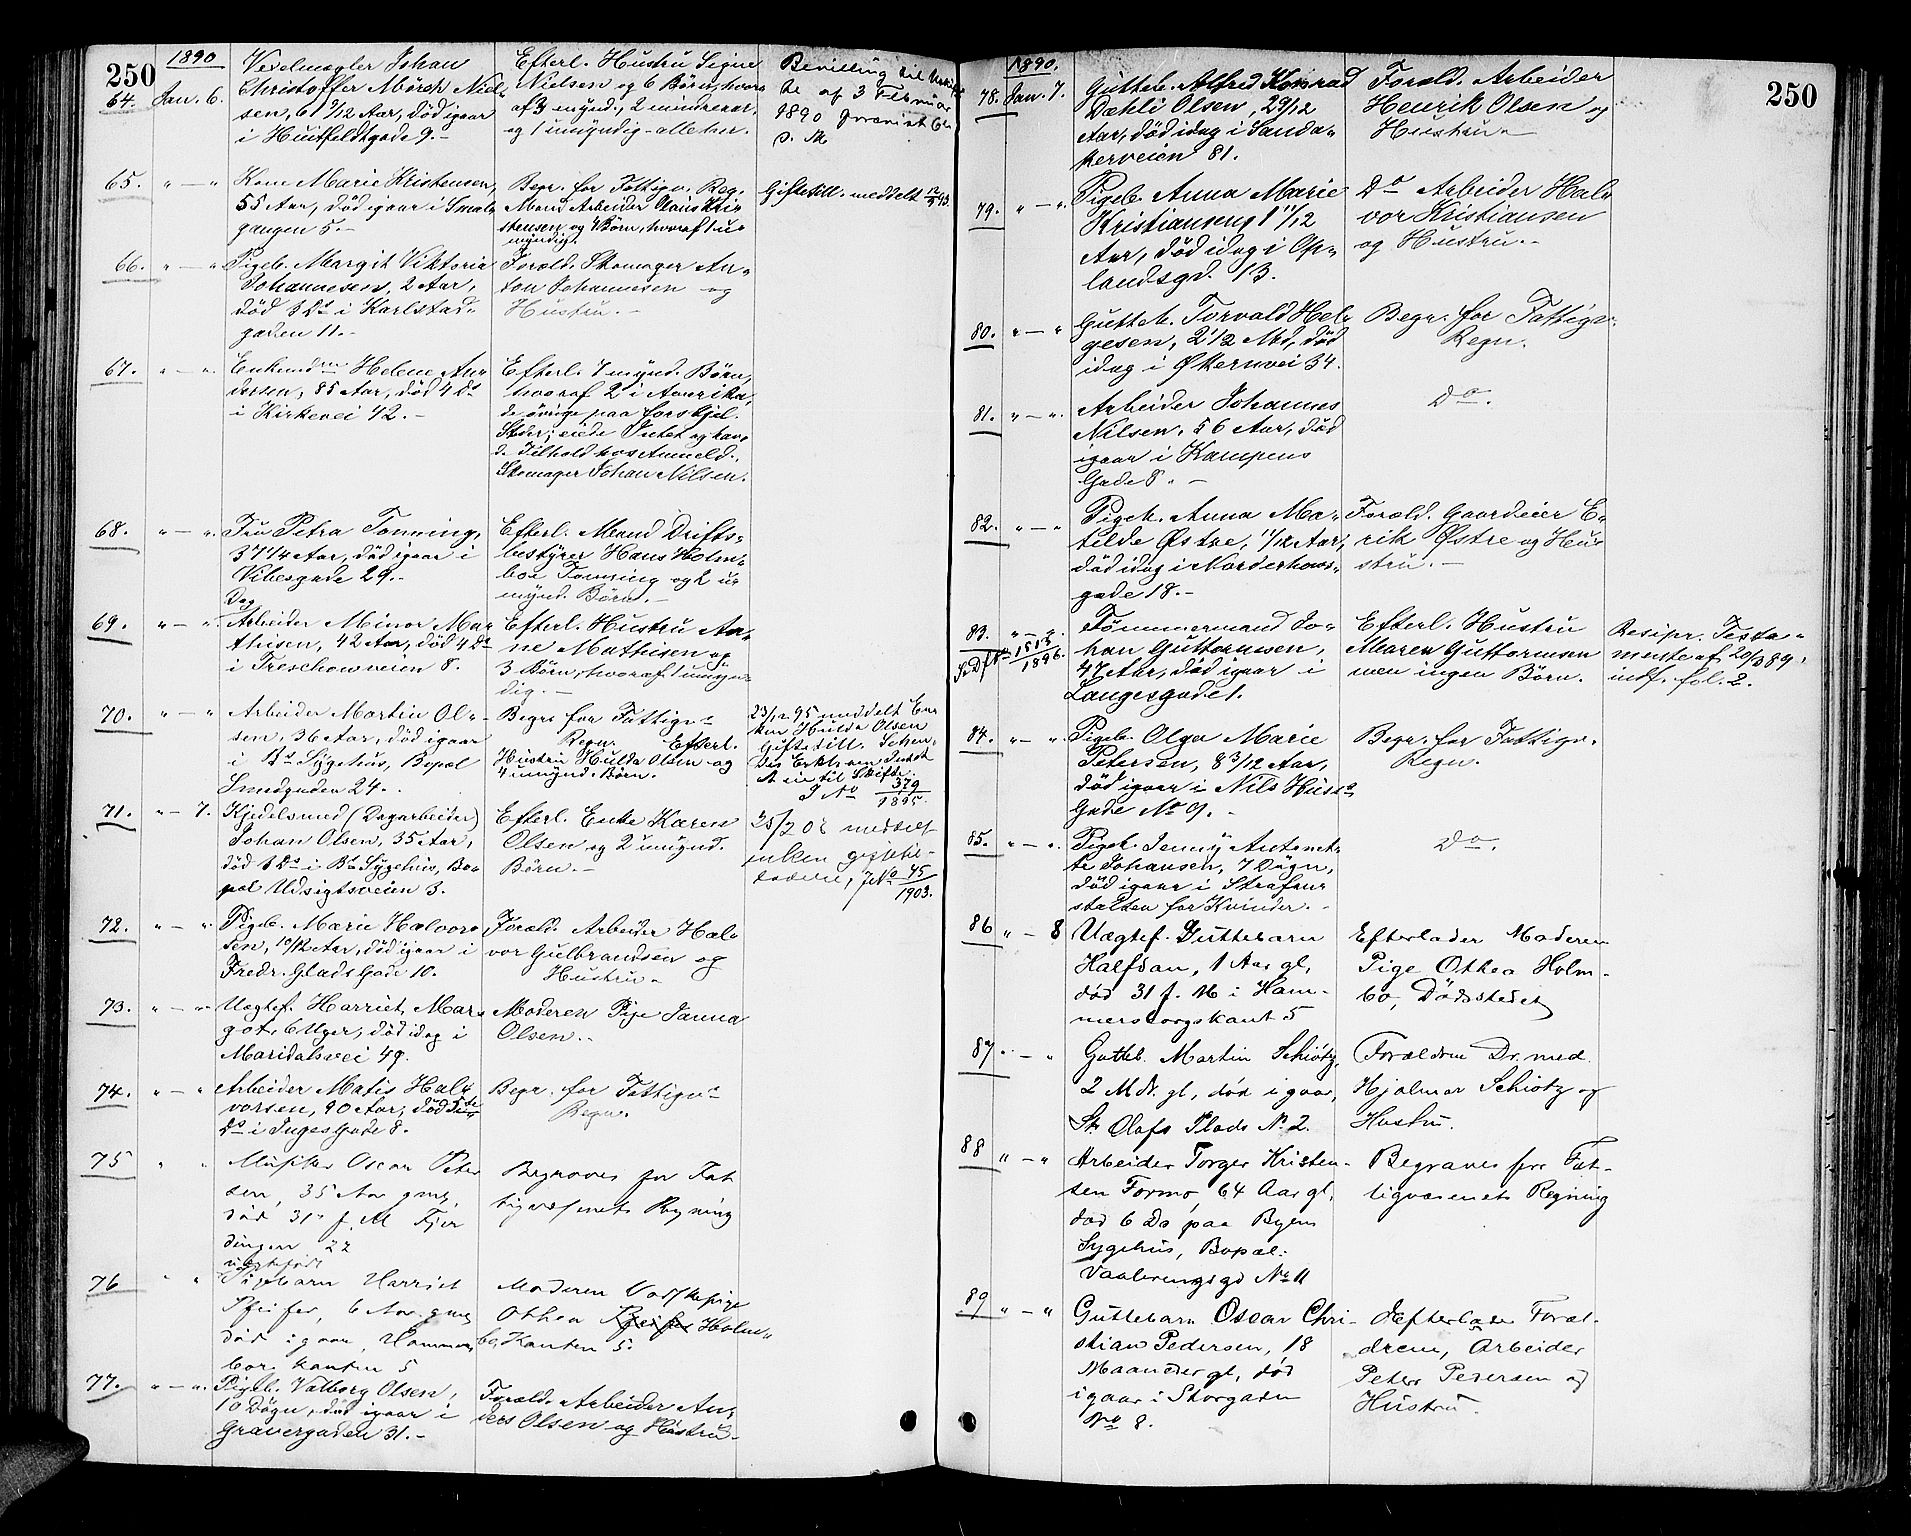 250
1890
64. Jan. 6. Vexelmægler Johan
Christoffer Mörch Niel-
sen, 61 9/12 Aar, död igaar
i Huitfeldtgade 9. -
Efterl. Hustru Signe
Nielsen og 6 Börn, hvor-
af 3 mynd., 2 mindreaar.
og 1 umyndig - alle her.
Bevilling til
af 3 Februar
1890
65. " — " Kone Marie Kristensen,
55 Aar, död igaar i Smal-
gangen 5. -
Begr. for Fattigv. Reg.
Mand Arbeider Olaus Kri-
stensen og Börn, hvoraf 1 u-
myndig.
Giftetill. meddelt
66. " — " Pigeb. Margit Viktoria
Johannesen, 2 Aar,
död 3 Ds i Karlstad-
gaden 11. -
Foræld. Skomager An-
ton Johannesen og
Hustru. -
67. " — " Enkemdm Helene An-
dersen, 85 Aar, död 4 Ds
i Kirkevei 42. -
Efterl. 7 mynd. Börn,
hvoraf 2 i Amerika,
de övrige paa forskjel.
Steder; eiede Intet og hav-
de Tilhold hos Anmeld.
Skomager Johan Nilsen.
68. " — " Fru Petra Tonning,
37 1/4 Aar, död igaar i
Vibesgade 29. -
Efterl. Mand Drifts-
bestyrer Hans Holm-
boe Tonning og 2 u-
mynd. Börn. -
69. " — " Dag
Arbeider Minor Ma-
thisen, 42 Aar, död 4 Ds
i Treschowveien 8.
Efterl. Hustru An-
ne Mathisen og
3 Börn, hvoraf 1 umyn-
dig. -
70. " — " Arbeider Martin Ol-
sen, 36 Aar, död igaar
i Bs Sygehus, Bopæl
Smedgaden 24. -
Begr. for Fattigv.
Regn. Efterl.
Hustru Hulda Olsen og
4 umynd. Börn.
23/12 95 meddelt En-
ken Hulda Olsen
Giftetill.
Erkl. om Intet
at eie til Skifte.
J No 379
1895.
71. " — 7. Kjedelsmed (Dagarbeider)
Johan Olsen, 35 Aar,
död 3 Ds i Bs Sygehus, Bo-
pæl Udsigtsveien 3.
Efterl. Enke Karen
Olsen og 2 umynd.
Börn. -
25/2 02 meddelt
enken gifte-
ladelse, J No 45
1903.
72. " — " Pigeb. Marie Halvor-
sen, 10/12 Aar, död igaar i
Fredr. Glads Gade 10.
Foræld. Arbeider Hal-
vor Gulbrandsen og
Hustru.
73. " — " Uægtef. Harriet Mar-
got, 6 Uger, död idag i
Maridalsvei 49.
Moderen Pige Janna
Olsen. -
74. " — " Arbeider Matis Hal-
vorsen, 90 Aar, död 5te
Ds i Inges Gade 8.
Begr. for Fattigv.
Regn.
75 " " Musiker Oscar Peter-
sen, 35 Aar gml,
död 31. f. M Fjer-
dingen 22
Begraves for Fat-
tigvæsenets Regning
76 " " uægtefödt
Pigebarn Harriet
Pfeifer, 6 Aar gml,
död igaar, Hammers-
borg kanten 5
Moderen Vaskepige
Othea Pfeifer Holm-
bo, Kanten 5.
77. " — " Pigeb. Valborg Olsen,
10 Dögn, död igaar i
Gravergaden 31. -
Foræld. Arbeider An-
ders Olsen og Hustru. -
250
1890.
78. Jan. 7. Gutteb. Alfred Konrad
Dæhli Olsen, 2 9/12
Aar, död idag i Sanda-
kerveien 81.
Foræld. Arbeider
Henrik Olsen og
Hustru. -
79. " — " Pigeb. Anna Marie
Kristiansen, 1 11/12
Aar, död idag i Op-
landsgd. 13.
Do Arbeider Hal-
vor Kristiansen
og Hustru. -
80. " — " Gutteb. Torvald Hel-
gesen, 2 1/2 Md, död
idag i Økernvei 34.
Begr. for Fattigv.
Regn.
81. " — " Arbeider Johannes
Nilsen, 56 Aar, död
igaar i Kampens
Gade 8. -
Do.
82. " — " Pigeb. Anna Ma-
tilde Østre, 1/12 Aar,
död idag i Norderhovs-
gade 18. -
Foræld. Gaardeier E-
rik Østre og Hu-
stru. -
83. " — " Tömmermand Jo-
han Guttormsen,
47 Aar, död igaar i
Langesgade 1.
1513
1896.
Efterl. Hustru
Maren Guttormsen
men ingen Börn.
Resipr. Testa-
mente af 20/3 89,
indf. fol. 2.
84. " — " Pigeb. Olga Marie
Petersen, 8 3/12 Aar,
död igaar i Nils Huus
Gade No 9. -
Begr. for Fattigv.
Regn.
85. " — " Pigeb. Jenny Antonet-
te Johansen, 7 Dögn,
död igaar i Strafan-
stalten for Kvinder. -
Do.
86 " — 8 Uægtef. Guttebarn
Halfdan, 1 Aar gl,
död 31 f. M i Ham-
mersborgskant 5
Efterlader Moderen
Pige Othea Holm-
bo, Dödsstedet
87 " — " Gutteb. Martin Schiötz,
2 Mdr. gl, död igaar,
St. Olafs Plads No 2.
Forældrene Dr. med.
Hjalmar Schiötz og
Hustru.
88 " — " Arbeider Torger Kristen-
sen Formo, 64 Aar gl,
död 6 Ds paa Byens
Sygehus, Bopæl:
Vaalerengsgd No 11
Begraves for Fat-
tigvæsenets Regning
89 " — " Guttebarn Oscar Chri-
stian Pedersen, 18
Maaneder gl, död
igaar i Storgaden
No 8.
Efterlader Foræl-
drene, Arbeider
Peter Pedersen og
Hustru.